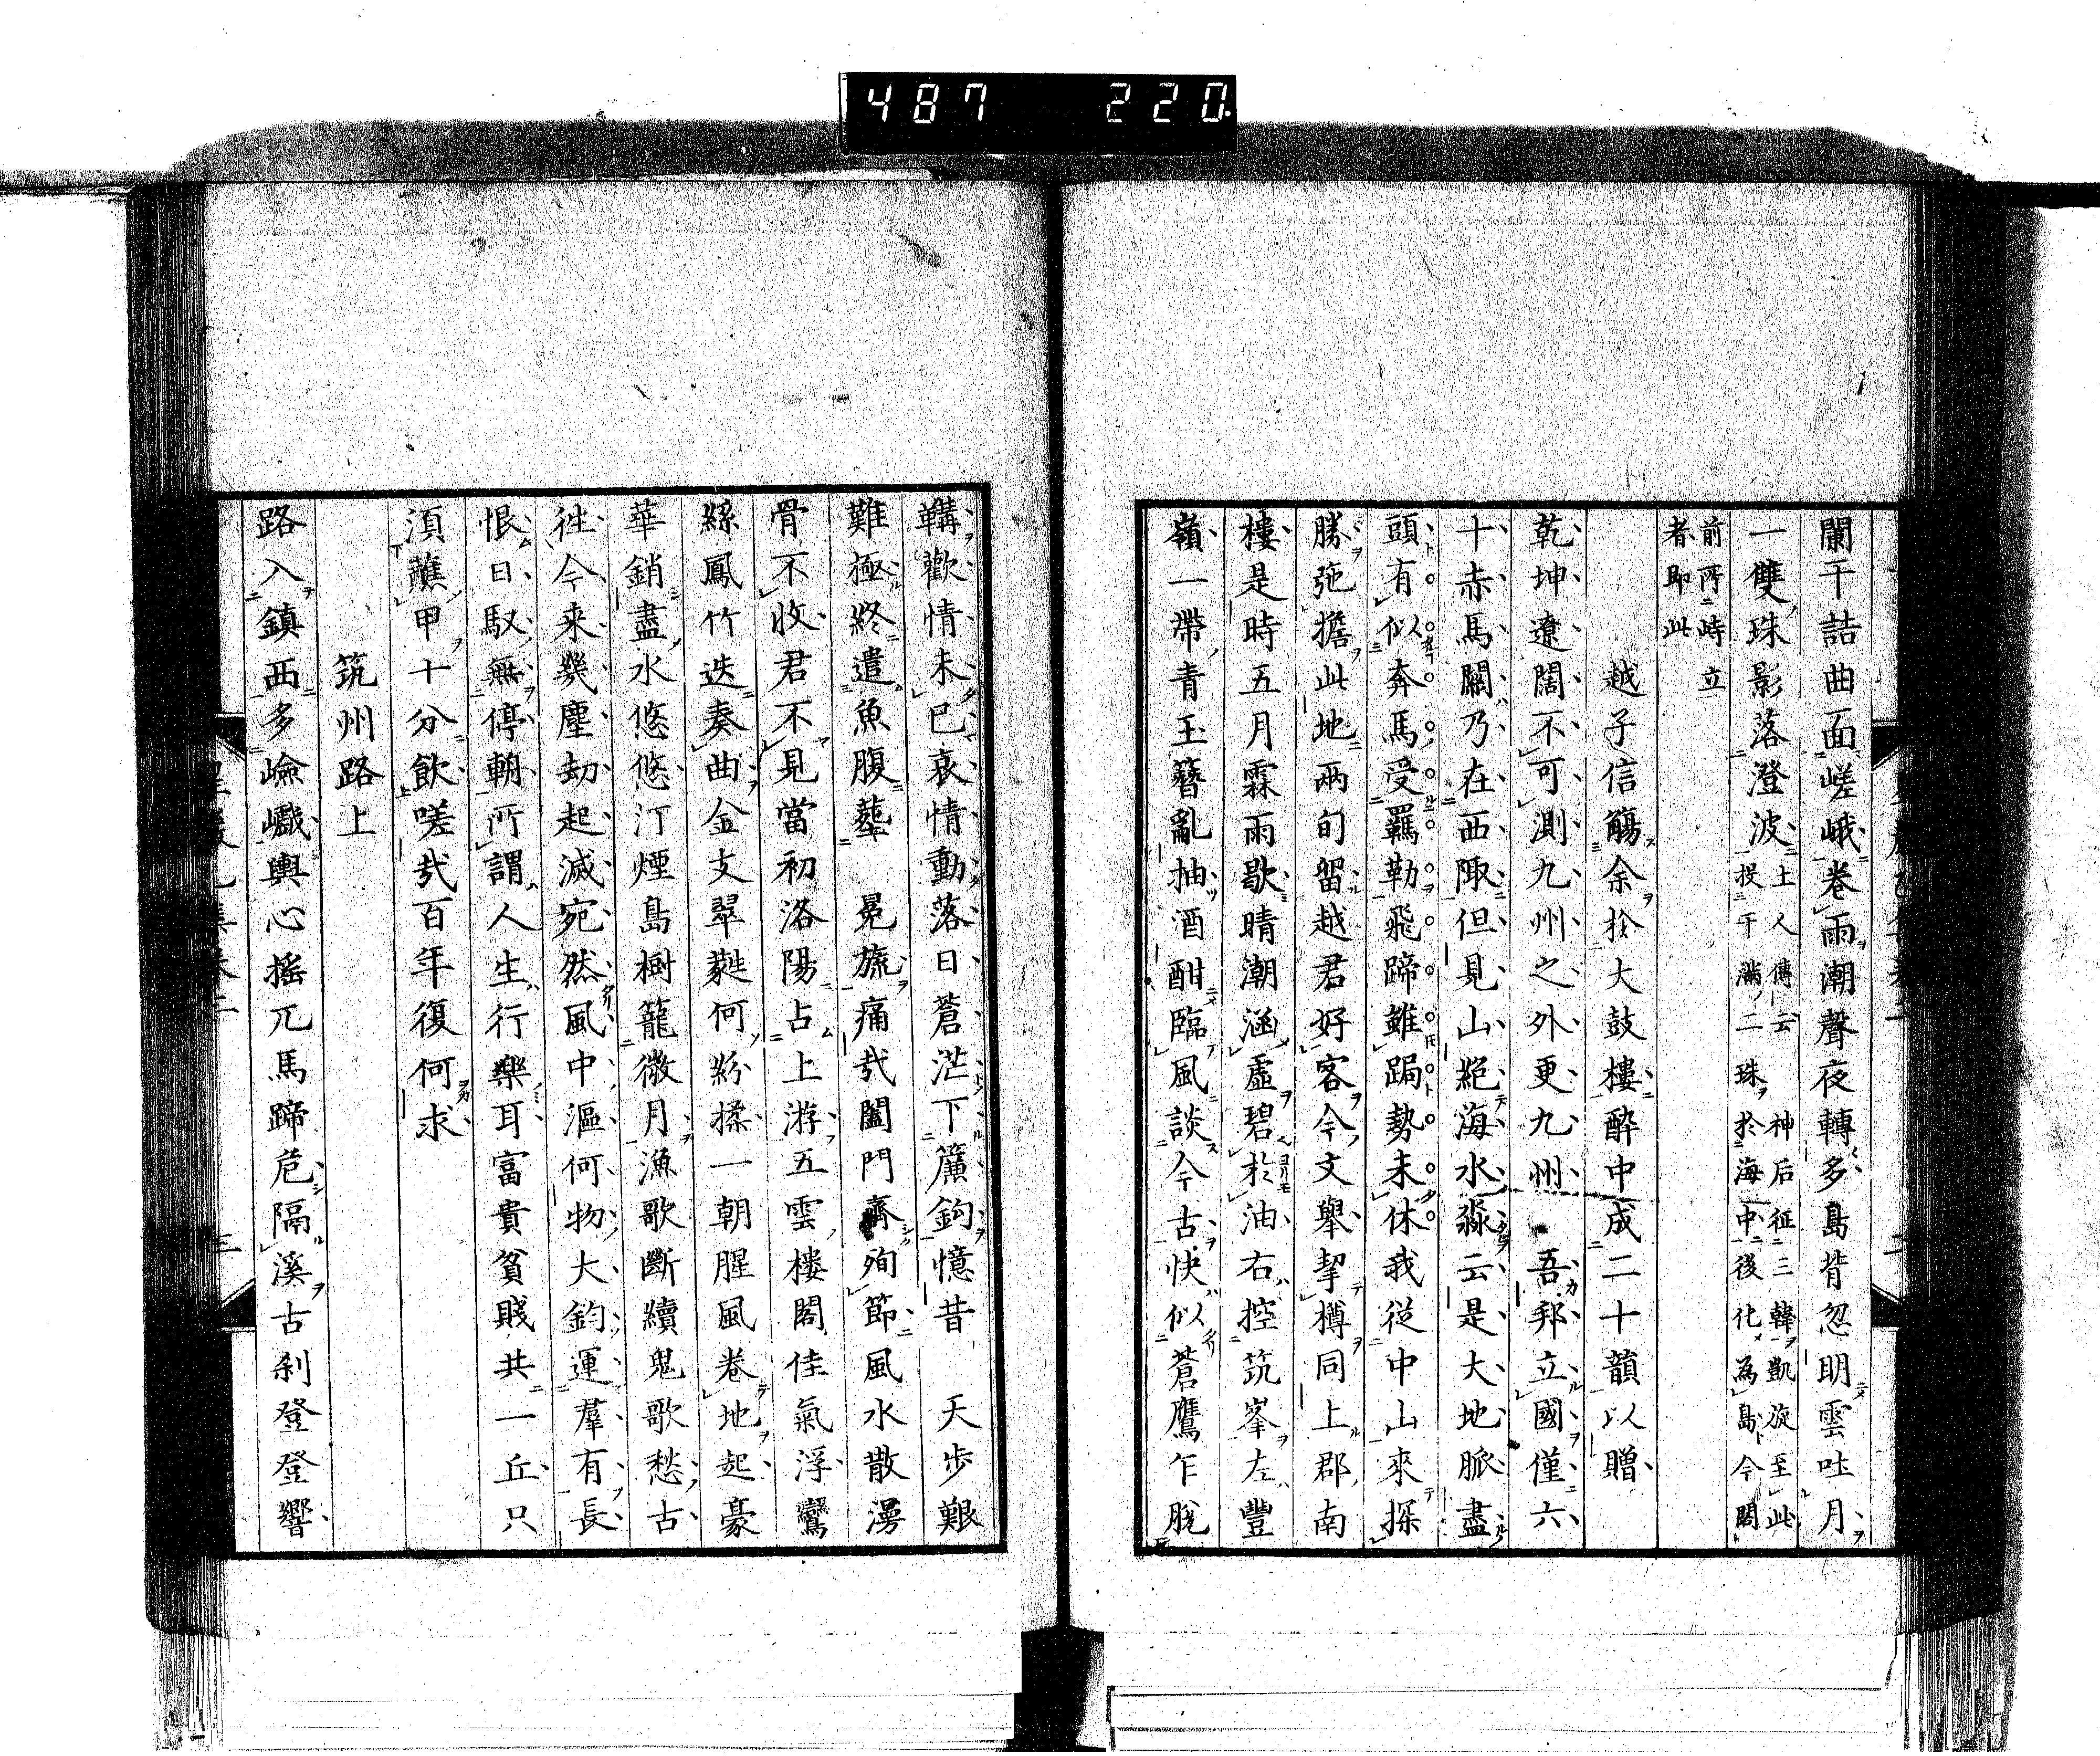 487 220
闌干詰曲面嵯峨卷雨潮聲夜轉多島背忽明雲吐月
一雙珠影落澄波土人傳云神后征三韓凱旋至此
投干滿二珠於海中後化為島今閣
前所峙立
者即此
越子信觴余於大鼓樓醉中成二十韻以贈
乾坤遼闊不可測九州之外更九州 吾邦立國僅六
十赤馬關乃在西陬但見山絕海水淼云是大地脈盡
頭有似奔馬受羈勒飛蹄雖跼勢未休我從中山來探
勝弛擔此地兩旬留越君好客今文舉挈樽同上郡南
樓是時五月霖雨歇晴潮涵虛碧於油右控筑峯左豐
嶺一帶青玉簪亂抽酒酣臨風談今古快似蒼鷹乍脫
韝歡情未已哀情動落日蒼茫下簾鉤憶昔 天步艱
難極終遣魚腹葬 冕旒痛哉闔門齊殉節風水散漫
骨不收君不見當初洛陽占上游五雲樓閣佳氣浮鸞
絲鳳竹迭奏曲金支翠蕤何紛揉一朝腥風卷地起豪
華銷盡水悠悠汀煙島樹籠微月漁歌斷續鬼歌愁古
往今来幾塵劫起滅宛然風中漚何物大鈞運羣有長
恨日馭無停輈所謂人生行樂耳富貴貧賤共一丘只
須蘸甲十分飲嗟哉百年復何求
筑州路上
路入鎮西多嶮巇輿心搖兀馬蹄危隔溪古刹登登響